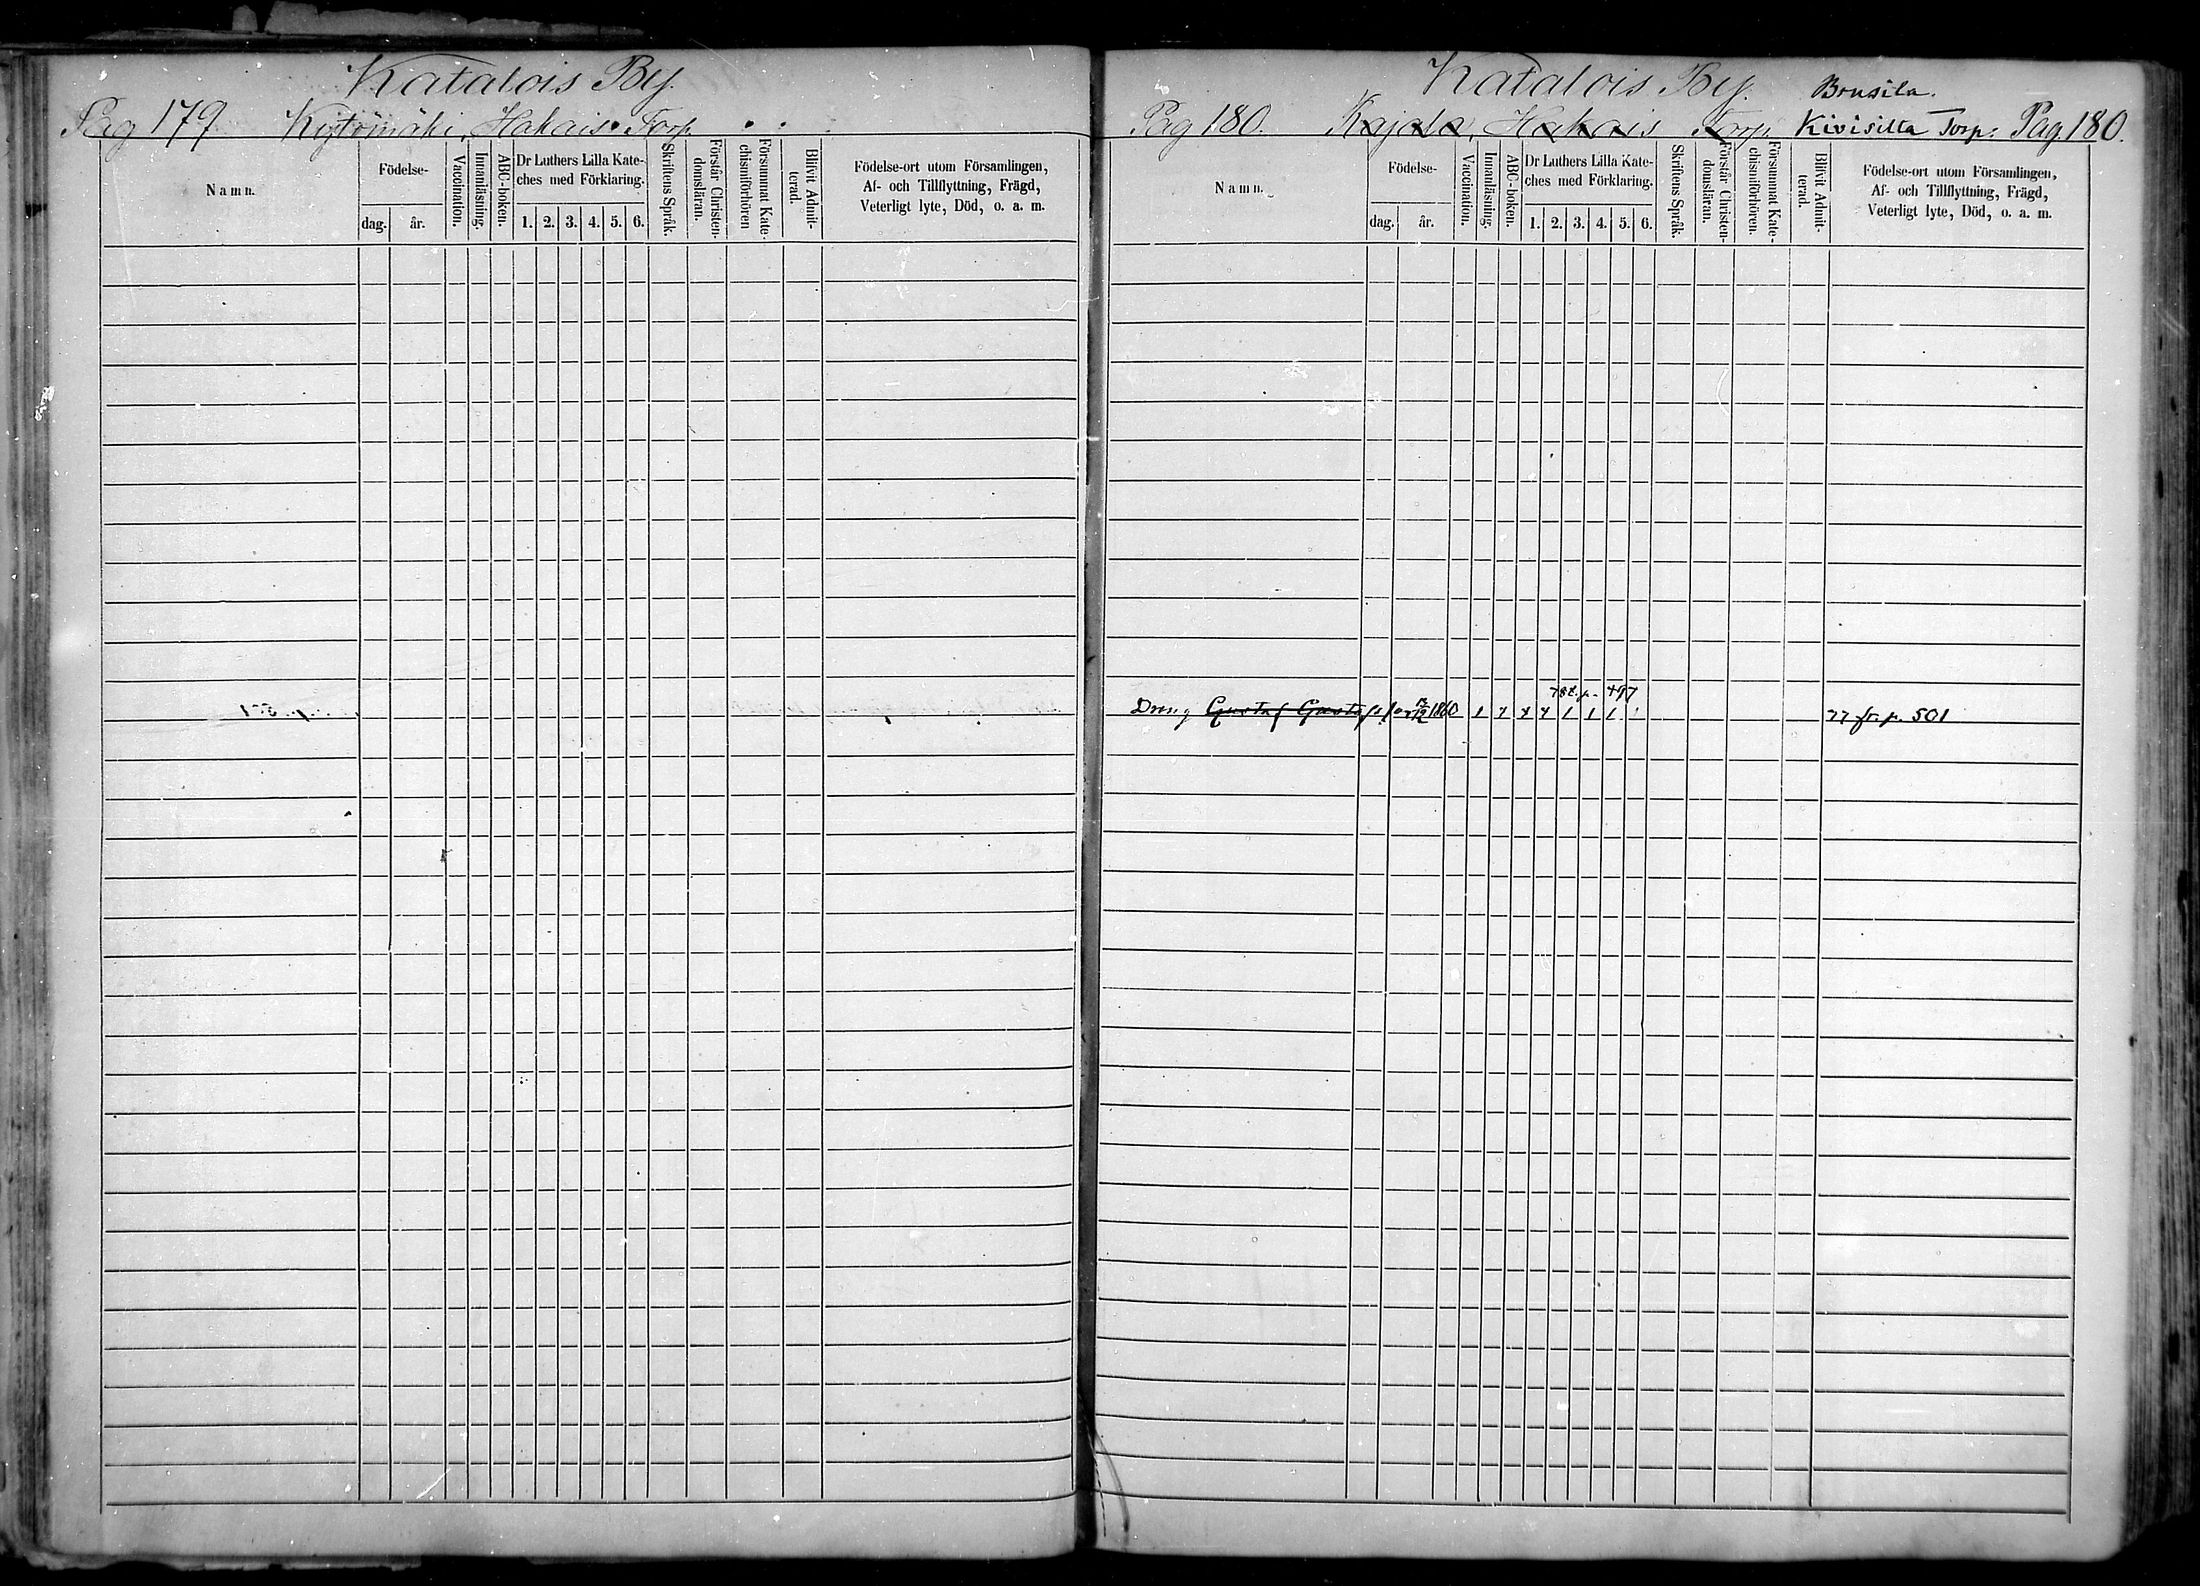 Katalois By.
Pag 179 Kytömäki, Hakais Torp.
Namn.
Födelse-
dag. år.
Vaccination.
Innanläsning.
ABC-boken.
Dr Luthers Lilla Kate-
ches med Förklaring.
1. 2. 3. 4. 5. 6.
Skriftens Språk.
Förstår Christen-
domsläran.
Försummat Kate-
chismiförhören
Blifvit Admit-
terad.
Födelse-ort utom Församlingen,
Af- och Tillflyttning, Frägd,
Veterligt lyte, Död, o. a. m.
Katalois By. Brusila.
Pag 180. Kajala, Hakais Torp. Kivisilta Torp. Pag 180.
Namn.
Födelse-
dag. år.
Vaccination.
Innanläsning.
ABC-boken.
Dr Luthers Lilla Kate-
ches med Förklaring.
1. 2. 3. 4. 5. 6.
Skriftens Språk.
Förstår Christen-
domsläran.
Försummat Kate-
chismiförhören.
Blifvit Admit-
terad.
Födelse-ort utom Församlingen,
Af- och Tillflyttning, Frägd,
Veterligt lyte, Död, o. a. m.
78 t. p. 497
Dreng Gustaf Gustafsson 1860 77 fr. p. 501